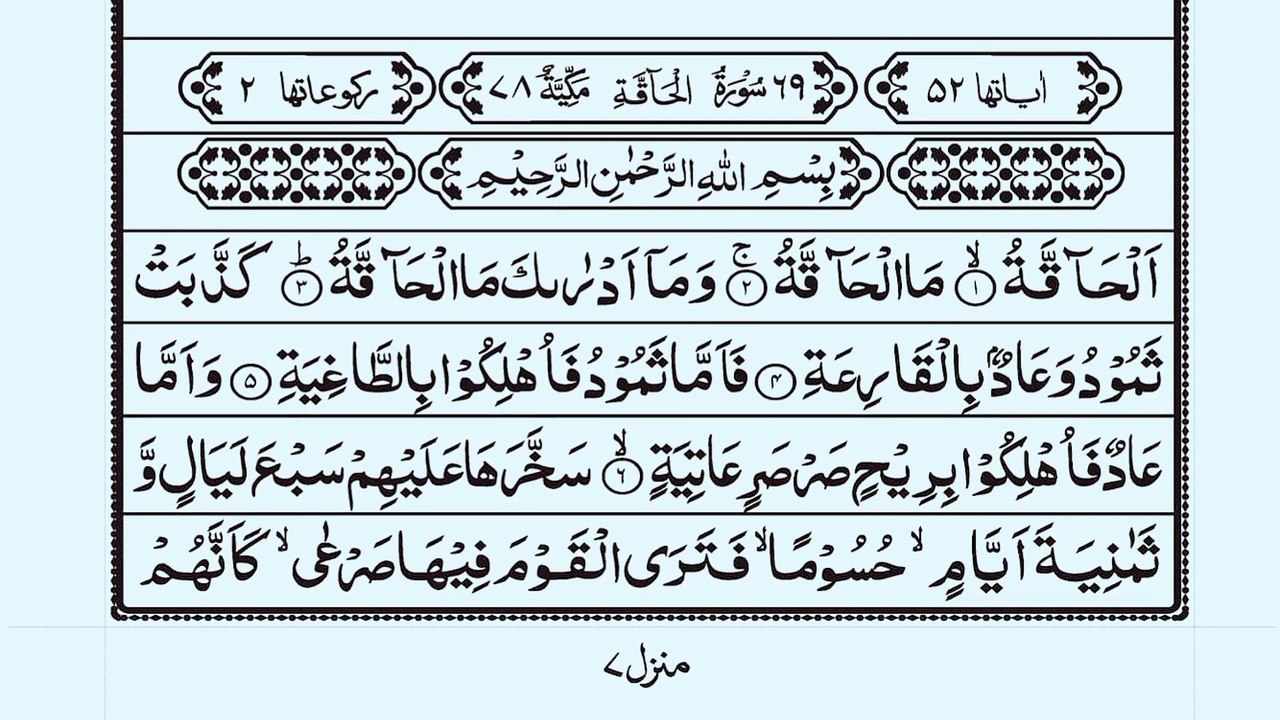 اٰیاتها ۵۲ ٦٩ سُوْرَةُ الْحَآقَّةِ مَكِّیَّةٌ ۷۸ ركوعاتها ۲
بِسْمِ اللّٰهِ الرَّحْمٰنِ الرَّحِیْمِ
اَلْحَآقَّةُ ۙ۱ مَا الْحَآقَّةُ ۚ۲ وَ مَاۤ اَدْرٰىكَ مَا الْحَآقَّةُ ؕ۳ كَذَّبَتْ
ثَمُوْدُ وَ عَادٌۢ بِالْقَارِعَةِ ۴ فَاَمَّا ثَمُوْدُ فَاُهْلِكُوْا بِالطَّاغِیَةِ ۵ وَ اَمَّا
عَادٌ فَاُهْلِكُوْا بِرِیْحٍ صَرْصَرٍ عَاتِیَةٍ ۙ۶ سَخَّرَهَا عَلَیْهِمْ سَبْعَ لَیَالٍ وَّ
ثَمٰنِیَةَ اَیَّامٍ ۙ حُسُوْمًا ۙ فَتَرَى الْقَوْمَ فِیْهَا صَرْعٰى ۙ كَاَنَّهُمْ
منزل ۷